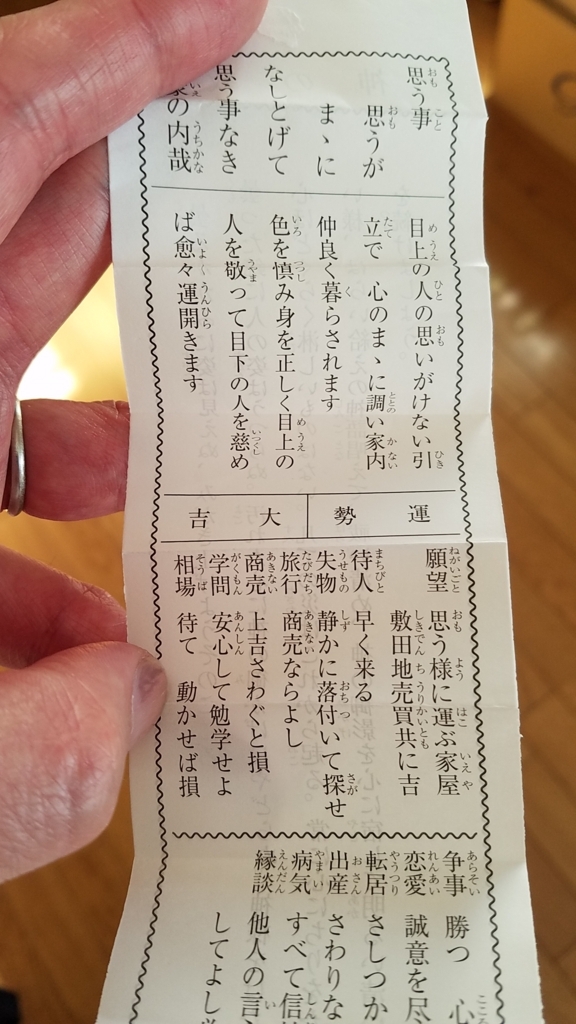 思う事
思うが
まゝに
なしとげて
思う事なき
の内哉
目上の人の思いがけない引
立で 心のまゝに調い家内
仲良く暮らされます
色を慎み身を正しく目上の
人を敬って目下の人を慈め
ば愈々運開きます
運勢 大吉
願望 思う様に運ぶ家屋
敷田地売買共に吉
待人 早く来る
失物 静かに落付いて探せ
旅行 商売ならよし
商売 上吉さわぐと損
学問 安心して勉学せよ
相場 待て 動かせば損
争事 勝つ 心
恋愛 誠意を尽
転居 さしつか
出産 さわりな
病気 すべて信
縁談 他人の言
してよし